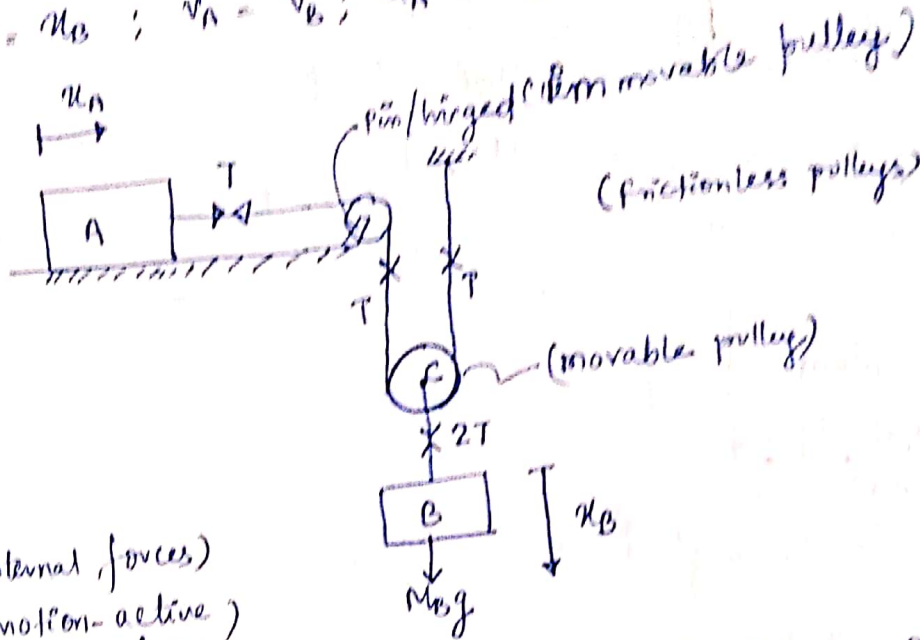 = x_B ; v_A = v_B ;
x_A
pin/hinged ( movable pulley)
(frictionless pulleys)
T
A
T
T
(movable pulley)
2T
B
x_B
M_Bg
ternal forces)
motion-active)